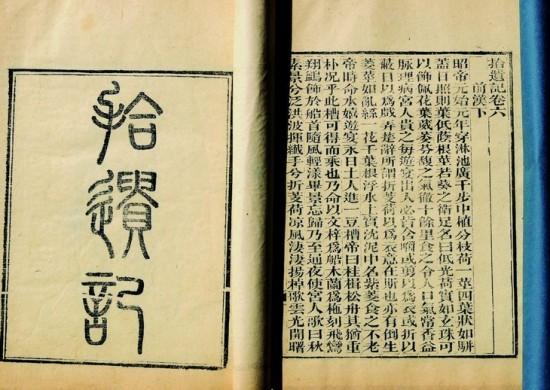 拾遺記
拾遺記卷六
前漢下
昭帝元始元年穿淋池廣千步中植分枝荷一莖四葉狀如駢
葢日照則葉低蔭根莖若葵之衛足名曰低光荷實如玄珠可
以飾佩花葉葳萎芬馥之氣徹十餘里食之令人口氣常香益
脉理病宮人貴之每遊宴出入必皆含嚼或剪以爲衣或折以
蔽日以爲戲弄楚辭所謂折芰荷以爲衣意在斯也亦有倒生
菱莖如亂絲一花千葉根浮水上實沈泥中名紫菱食之不老
帝時命水嬉遊宴永日土人進一豆槽帝曰桂楫松舟其猶重
朴况乎此槽可得而乘也乃命以文梓爲船木蘭爲柂刻飛鸞
翔鷁飾於船首隨風輕漾畢景忘歸乃至通夜使宮人歌曰秋
素景兮泛洪波揮纖手兮折芰荷涼風淒淒揚棹歌雲光開曙